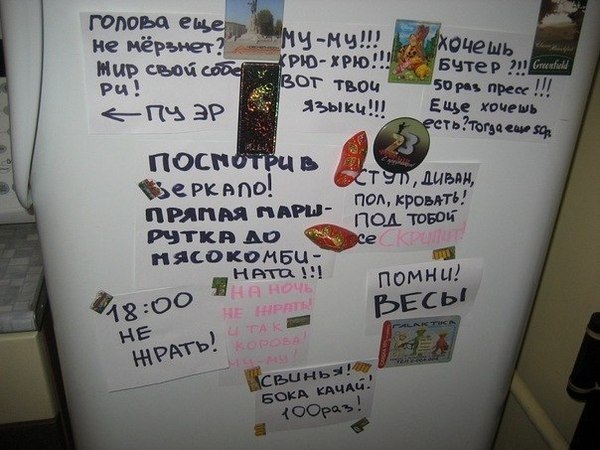 ГОЛОВА ЕЩЕ
НЕ МЁРЗНЕТ?
ЖИР СВОЙ СОБЕ
РИ!
← ПУ ЭР
МУ-МУ!!!
ХРЮ-ХРЮ!!!
ВОТ ТВОИ
ЯЗЫКИ!!!
ХОЧЕШЬ
БУТЕР?!!
50 РАЗ ПРЕСС!!!
ЕЩЕ ХОЧЕШЬ
ЕСТЬ? ТОГДА ЕЩЕ 50р.
Greenfield
23
ПОСМОТРИ В
ЗЕРКАЛО!
ПРЯМАЯ МАРШ-
РУТКА ДО
МЯСОКОМБИ-
НАТА!!!
СТУЛ, ДИВАН,
ПОЛ, КРОВАТЬ!
ПОД ТОБОЙ
ВСЕ СКРИПИТ!
18:00
НЕ
ЖРАТЬ!
НА НОЧЬ
НЕ ЖРАТЬ!
И ТАК
КОРОВА!
МУ-МУ!
ПОМНИ!
ВЕСЫ
GALAKTIKA
СВИНЬЯ!
БОКА КАЧАЙ!
100 раз!